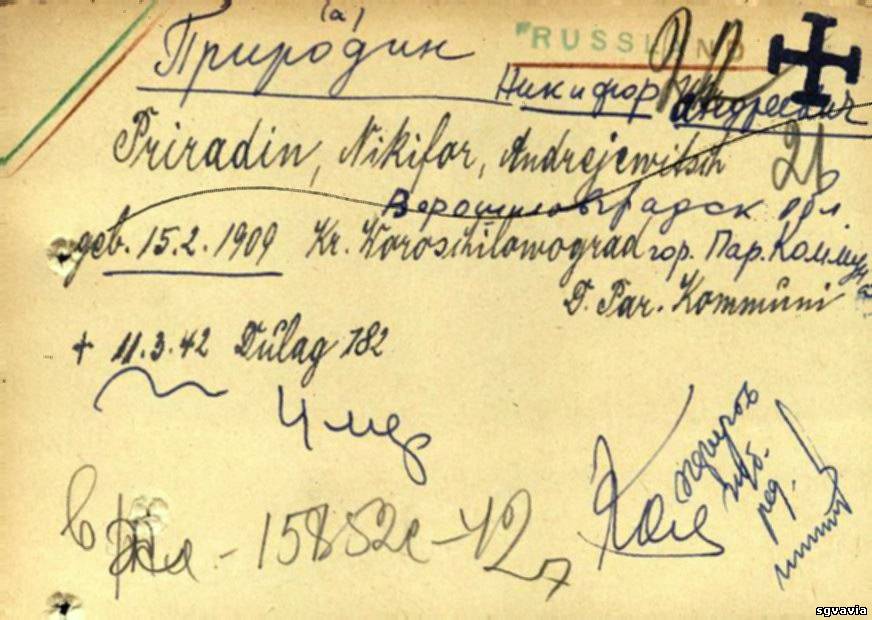 (а)
Природин
"RUSSLAND
Никифор Андреевич
Priradin, Nikifor, Andrejewitsch
21
Ворошиловградск обл
geb. 15.2.1909 Kr. Woroschilowograd гор. Пар. Коммуна
D. Par. Kommuni
+ 11.3.42 Dulag 182
Умер
в - 15852с - 42
sgvavia